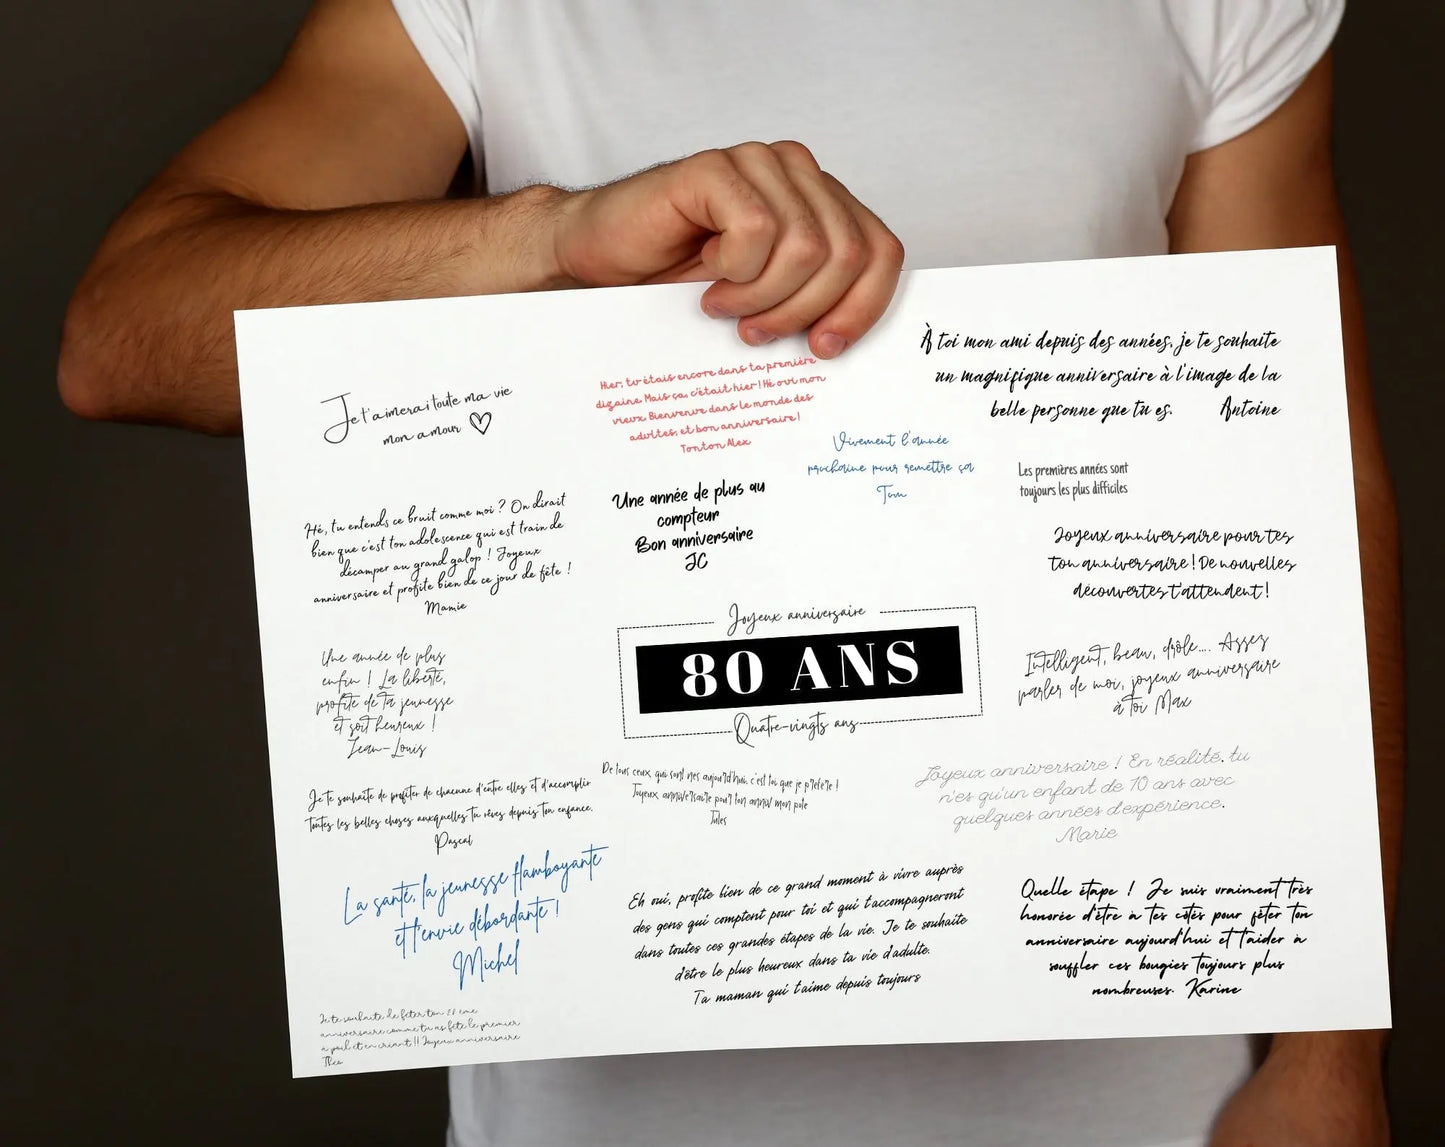 Je t'aimerai toute ma vie
mon amour
Hier, tu étais encore dans ta première
dizaine. Mais ça, c'était hier ! Hé oui mon
vieux. Bienvenue dans le monde des
adultes, et bon anniversaire !
Tonton Alex
À toi mon ami depuis des années, je te souhaite
un magnifique anniversaire à l'image de la
belle personne que tu es. Antoine
Vivement l'année
prochaine pour remettre ça
Tom
Les premières années sont
toujours les plus difficiles
Une année de plus au
compteur
Bon anniversaire
JC
Hé, tu entends ce bruit comme moi ? On dirait
bien que c'est ton adolescence qui est train de
décamper au grand galop ! Joyeux
anniversaire et profite bien de ce jour de fête !
Mamie
Joyeux anniversaire pour tes
ton anniversaire ! De nouvelles
découvertes t'attendent !
Joyeux anniversaire
80 ANS
Quatre-vingts ans
Une année de plus
enfin ! La liberté,
profite de ta jeunesse
et soit heureux !
Jean-Louis
Intelligent, beau, drôle.... Assez
parler de moi, joyeux anniversaire
à toi Max
De tous ceux qui sont nés aujourd'hui, c'est toi que je préfère !
Joyeux anniversaire pour ton anniv mon pote
Jules
Joyeux anniversaire ! En réalité, tu
n'es qu'un enfant de 10 ans avec
quelques années d'expérience.
Marie
Je te souhaite de profiter de chacune d'entre elles et d'accomplir
toutes les belles choses auxquelles tu rêves depuis ton enfance.
Pascal
La santé, la jeunesse flamboyante
et l'envie débordante !
Michel
Eh oui, profite bien de ce grand moment à vivre auprès
des gens qui comptent pour toi et qui t'accompagneront
dans toutes ces grandes étapes de la vie. Je te souhaite
d'être le plus heureux dans ta vie d'adulte.
Ta maman qui t'aime depuis toujours
Quelle étape ! Je suis vraiment très
honorée d'être à tes côtés pour fêter ton
anniversaire aujourd'hui et t'aider à
souffler ces bougies toujours plus
nombreuses. Karine
Je te souhaite de fêter ton
anniversaire comme tu as fêté le premier
à poil et en criant !! Joyeux anniversaire
Théo